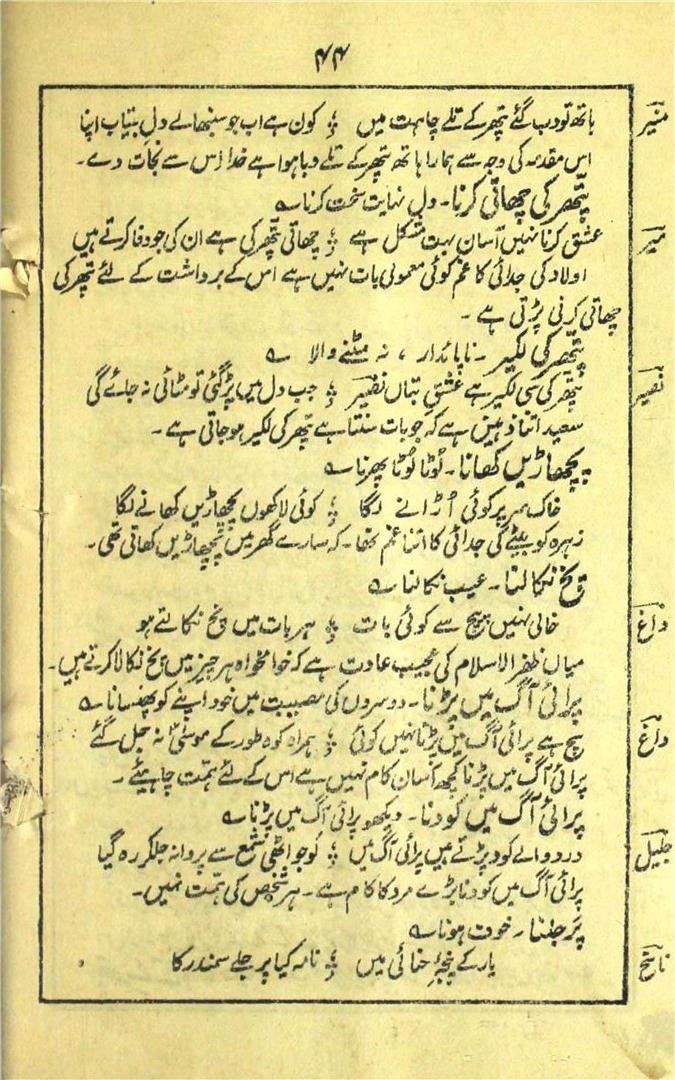 ۴۴
منیرؔ ہاتھ تو دب گئے پتھر کے تلے چاہت میں ؛ کون ہے اب جو سنبھالے دلِ بیتاب اپنا
اس مقدمہ کی وجہ سے ہمارا ہاتھ پتھر کے تلے دبا ہوا ہے خدا اس سے نجات دے۔
پتھر کی چھاتی کرنا۔ دل نہایت سخت کرنا ؎
میرؔ عشق کرنا نہیں آسان بہت مشکل ہے ؛ چھاتی پتھر کی ہے ان کی جو وفا کرتے ہیں
اولاد کی جدائی کا غم کوئی معمولی بات نہیں ہے اس کے برداشت کے لئے پتھر کی
چھاتی کرنی پڑتی ہے۔
پتھر کی لکیر۔ ناپائدار، نہ مٹنے والا ؎
نصیرؔ پتھر کی سی لکیر ہے عشقِ بتاں نصیرؔ ؛ جب دل میں پڑ گئی تو مٹائی نہ جائے گی
سعید اتنا ذہین ہے کہ جو بات سنتا ہے پتھر کی لکیر ہو جاتی ہے۔
پچھاڑیں کھانا۔ لوٹا لوٹا پھرنا ؎
خاک سر پر کوئی اُڑانے لگا ؛ کوئی لاکھوں پچھاڑیں کھانے لگا
زہرہ کو بیٹے کی جدائی کا اتنا غم تھا۔ کہ سارے گھر میں پچھاڑیں کھاتی تھی۔
پخ نکالنا۔ عیب نکالنا ؎
داغؔ خالی نہیں پیچ سے کوئی بات ؛ ہر بات میں پخ نکالتے ہو
میاں ظفر الاسلام کی عجیب عادت ہے کہ خوامخواہ ہر چیز میں پخ نکالا کرتے ہیں۔
پرائی آگ میں پڑنا۔ دوسروں کی مصیبت میں خود اپنے کو پھنسانا ؎
داغؔ سچ ہے پرائی آگ میں پڑتا نہیں کوئی ؛ ہمراہ کوہ طور کے موسیٰؑ نہ جل گئے
پرائی آگ میں پڑنا کچھ آسان کام نہیں ہے اس کے لئے ہمت چاہیئے۔
پرائی آگ میں کودنا۔ دیکھو پرائی آگ میں پڑنا ؎
جلیلؔ درد والے کود پڑتے ہیں پرائی آگ میں ؛ لَو جو اٹھی شمع سے پروانہ جلکر رہ گیا
پرائی آگ میں کودنا بڑے مرد کا کام ہے۔ ہر شخص کی ہمت نہیں۔
پَر جلنا۔ خوف ہونا ؎
ناسخؔ یار کے پنجۂ حنائی میں ؛ نامہ کیا پر جلے سمندر کا